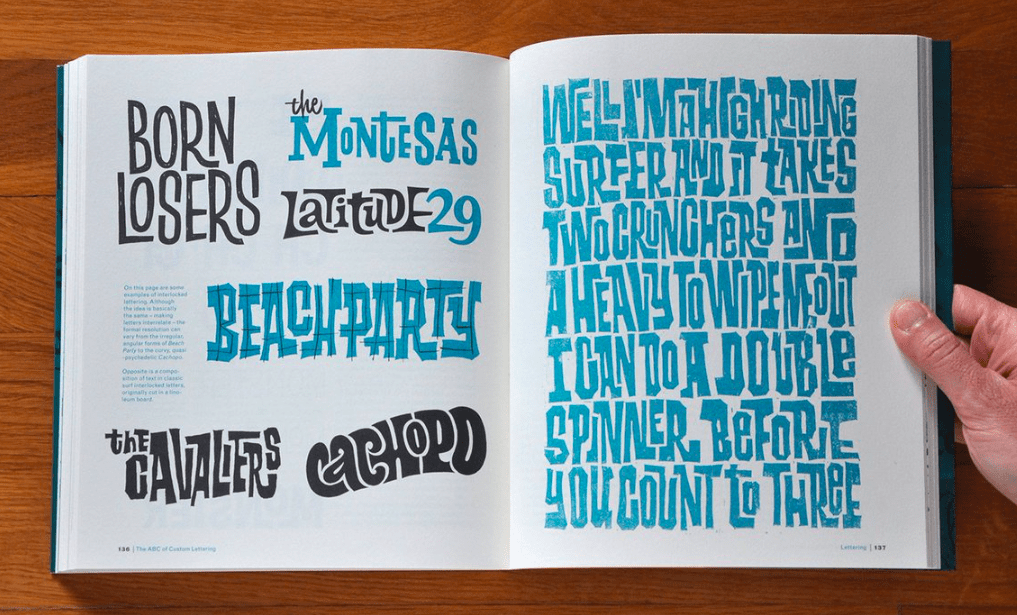 BORN
LOSERS
the
MONTESAS
LATITUDE 29
On this page are some
examples of interlocked
lettering. Although
the idea is basically
the same – making
letters interrelate – the
formal resolution can
vary from the irregular,
angular forms of Beach
Party to the curvy, quasi
-psychedelic Cachopo.
Opposite is a compo-
sition of text in classic
surf interlocked letters,
originally cut in a lino-
leum board.
BEACH PARTY
the
CAVALIERS
CACHOPO
136 | The ABC of Custom Lettering
WELL I'M A HIGH RIDING
SURFER AND IT tAKES
TWO CRUNCHERS AND
A HEAVY TO WIPE ME OUT
I CAN DO A DOUBLe
SPINNER BeFORE
YOU COUNT to THRee
Lettering | 137